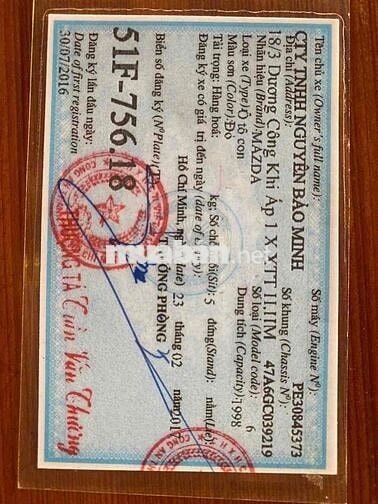 Tên chủ xe (Owner's full name):
CTY TNHH NGUYÊN BẢO MINH
Địa chỉ (Address):
18/3 Dương Công Khi Ấp 1 X XTT H.HM
Nhãn hiệu (Brand): MAZDA
Số loại (Model code): 6
Loại xe (Type): Ô tô con
Màu sơn (Color): Đỏ
Dung tích (Capacity): 1998
Số máy (Engine N°): PE30845373
Số khung (Chassis N°): 47A6GC039219
Tải trọng: Hàng hoá: kg; Số chỗ: ngồi(Sit): 5 đứng(Stand): nằm(Lie):
Đăng ký xe có giá trị đến ngày (date of expiry):
Hồ Chí Minh, ngày (date) 23 tháng 02 năm
Biển số đăng ký (N° Plate)
51F-756.18
PHÒNG
Đăng ký lần đầu ngày:
Date of first registration
30/07/2016
THƯỢNG TÁ Trần Văn Thương
muaban.net